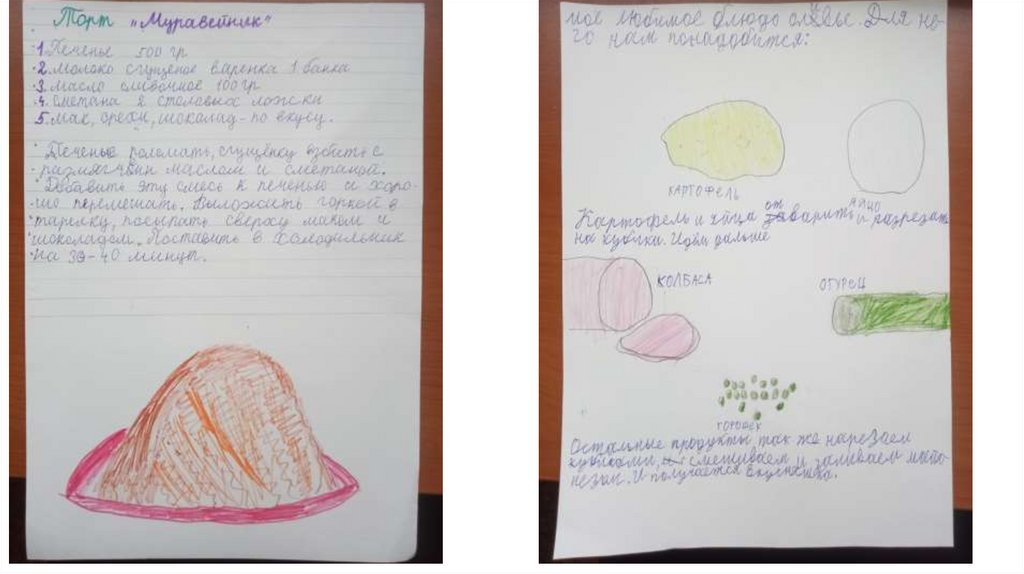 Торт „Муравейник"
1. Печенье 500 гр
2. Молоко сгущеное варенка 1 банка
3. Масло сливочное 100гр
4. Сметана 2 столовых ложки
5. Мак, орехи, шоколад - по вкусу.
Печенье поломать, сгущёнку взбить с
размягчён маслом и сметаной.
Добавить эту смесь к печенью и хоро-
шо перемешать. Выложить горкой в
тарелку, посыпать сверху маком и
шоколадом. Поставить в холодильник
на 30-40 минут.
моё любимое блюдо оливье. Для не-
го нам понадобится:
КАРТОФЕЛЬ
ЯЙЦО
Картофель и яйца отварить и разрезать
на кубики. Идём дальше
КОЛБАСА
ОГУРЕЦ
ГОРОШЕК
Остальные продукты так же нарезаем
кубиками, смешиваем и заливаем майо-
незом. И получается вкуснятина.